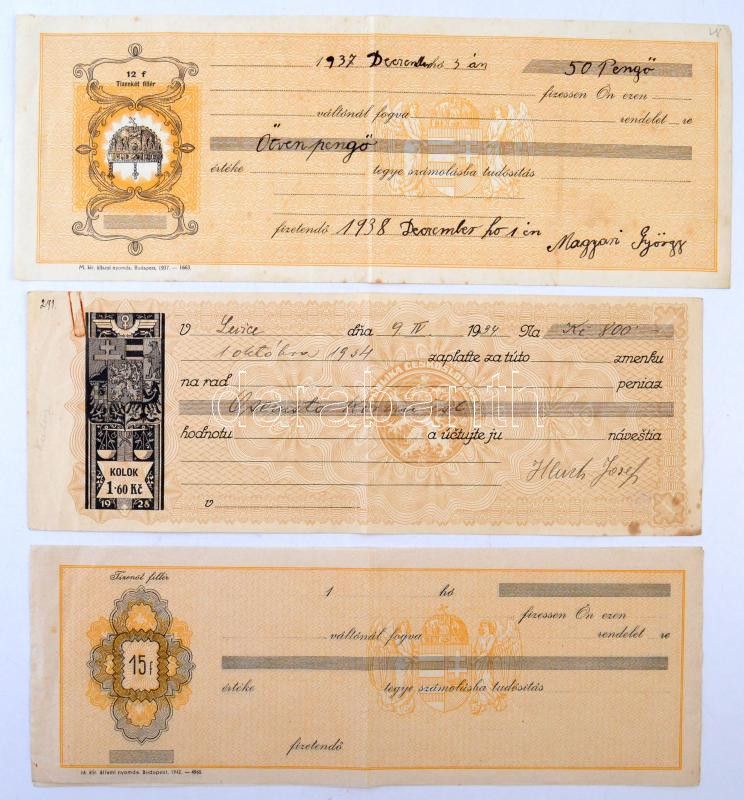 12 f
Tizenkét fillér
1937 December hó 3 án
50 Pengő
fizessen Ön ezen
váltónál fogva rendelet re
Ötven pengő
értéke tegye számolásba tudósítás
fizetendő 1938 December hó 1 én
Magyari György
M. kir. állami nyomda, Budapest, 1937. — 1663.
291.
V Levice dňa 9. IV. 1934 Na Kč 800
1 októbra 1934 zaplaťte za túto zmenku
na rad peniaz
darabanth
hodnotu a účtujte ju návestia
KOLOK
1·60 Kč
1928
Josef
v
Tizenöt fillér
1 hó
fizessen Ön ezen
váltónál fogva rendelet re
15 f
értéke tegye számolásba tudósítás
fizetendő
M. kir. állami nyomda, Budapest, 1942. — 4965.